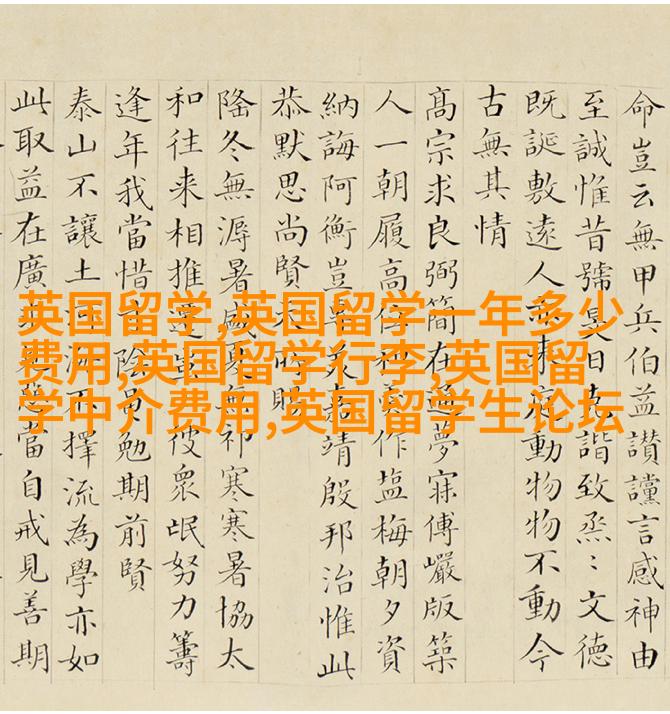 英国留学,英国留学一年多少
费用,英国留学行李,英国留
学中介费用,英国留学生论坛
命豈云無甲兵伯益讃讜言感神由
至誠惟昔號旻日克諧致烝〻文德
既誕敷遠人來動物物不動今
古無其情
高宗求良弼簡在通夢寐傅巖版築
人一朝履高位作塩梅朝夕資
納誨阿衡豈專美嘉靖殷邦治惟此
恭默思尚賢天所賜
隆冬無溽暑盛夏無祁寒寒暑協太
和往来相推遷彼衆氓努力籌
逢年我當惜寸陰黽勉期前賢
泰山不讓土河海不擇流為學亦如
此取益在廣當自戒見善期